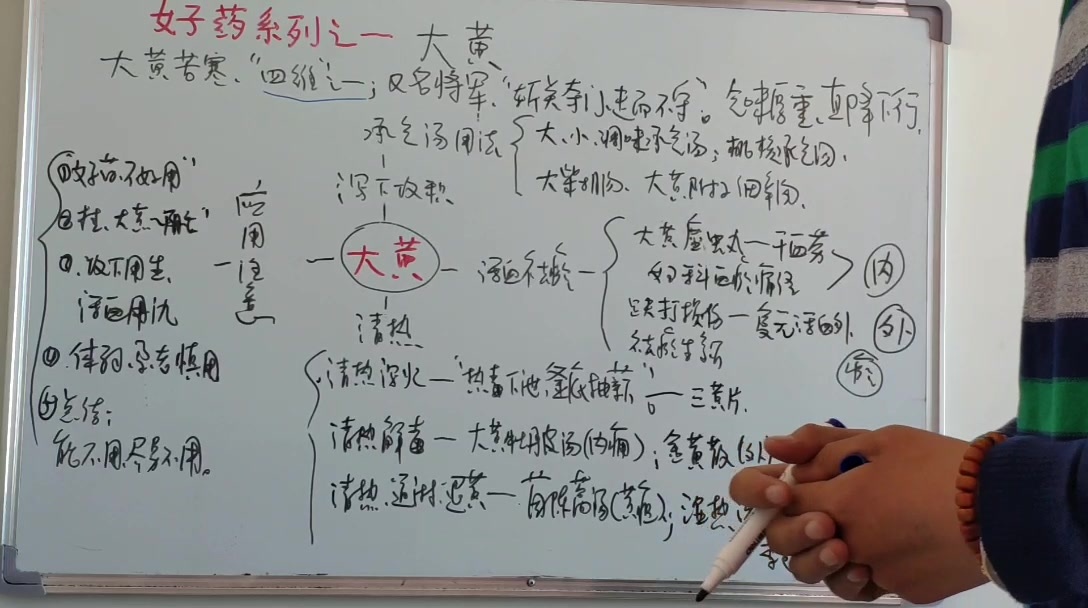 女子药系列之一 大黄
大黄苦寒、"四维"之一；又名将军，"斩关夺门、走而不守"。气味厚重，直降下行，
承气汤用法
大、小、调味承气汤；桃核承气汤、
大柴胡汤、大黄附子细辛汤、
泻下攻积
大黄
活血祛瘀
大黄䗪虫丸—干血劳
妇科血瘀痛经
内
跌打损伤—复元活血 外
祛瘀生新
瘀
清热
清热泻火—"热毒下泄、釜底抽薪"。—三黄片、
清热解毒—大黄牡丹皮汤(内痈)；金黄散
清热、通淋、退黄—茵陈蒿汤(黄疸)；湿热
应用注意
不好用"
大黄
攻下用生、
活血用
④体弱、孕者慎用
⑤总结：
能不用尽量不用。